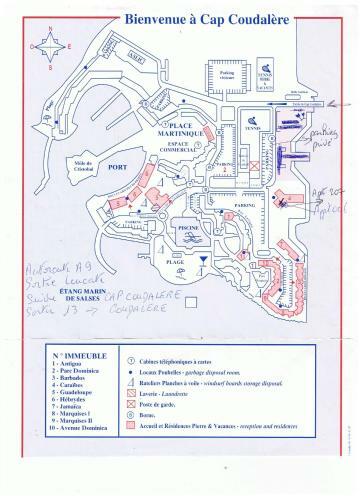 Bienvenue à Cap Coudalère
N
Parking
visiteur
TENNIS
PLACE
MARTINIQUE
ESPACE
COMMERCIAL
TENNIS
parking
privé
Môle de
Cristobal
PORT
PARKING
PARKING
PISCINE
PLAGE
ÉTANG MARIN
DE SALSES
Autoroute A9
Sortie Leucate
Suivre CAP COUDALERE
Sortie 13 → COUDALERE
N° IMMEUBLE
1 - Antigua
2 - Parc Dominica
3 - Barbados
4 - Caraïbes
5 - Guadeloupe
6 - Hébrydes
7 - Jamaïca
8 - Marquises I
9 - Marquises II
10 - Avenue Dominica
Cabines téléphoniques à cartes
Locaux Poubelles - garbage disposal room.
Rateliers Planches à voile - windsurf boards storage disposal.
Laverie - Laundrette
Poste de garde.
Borne.
Accueil et Résidences Pierre & Vacances - reception and residences